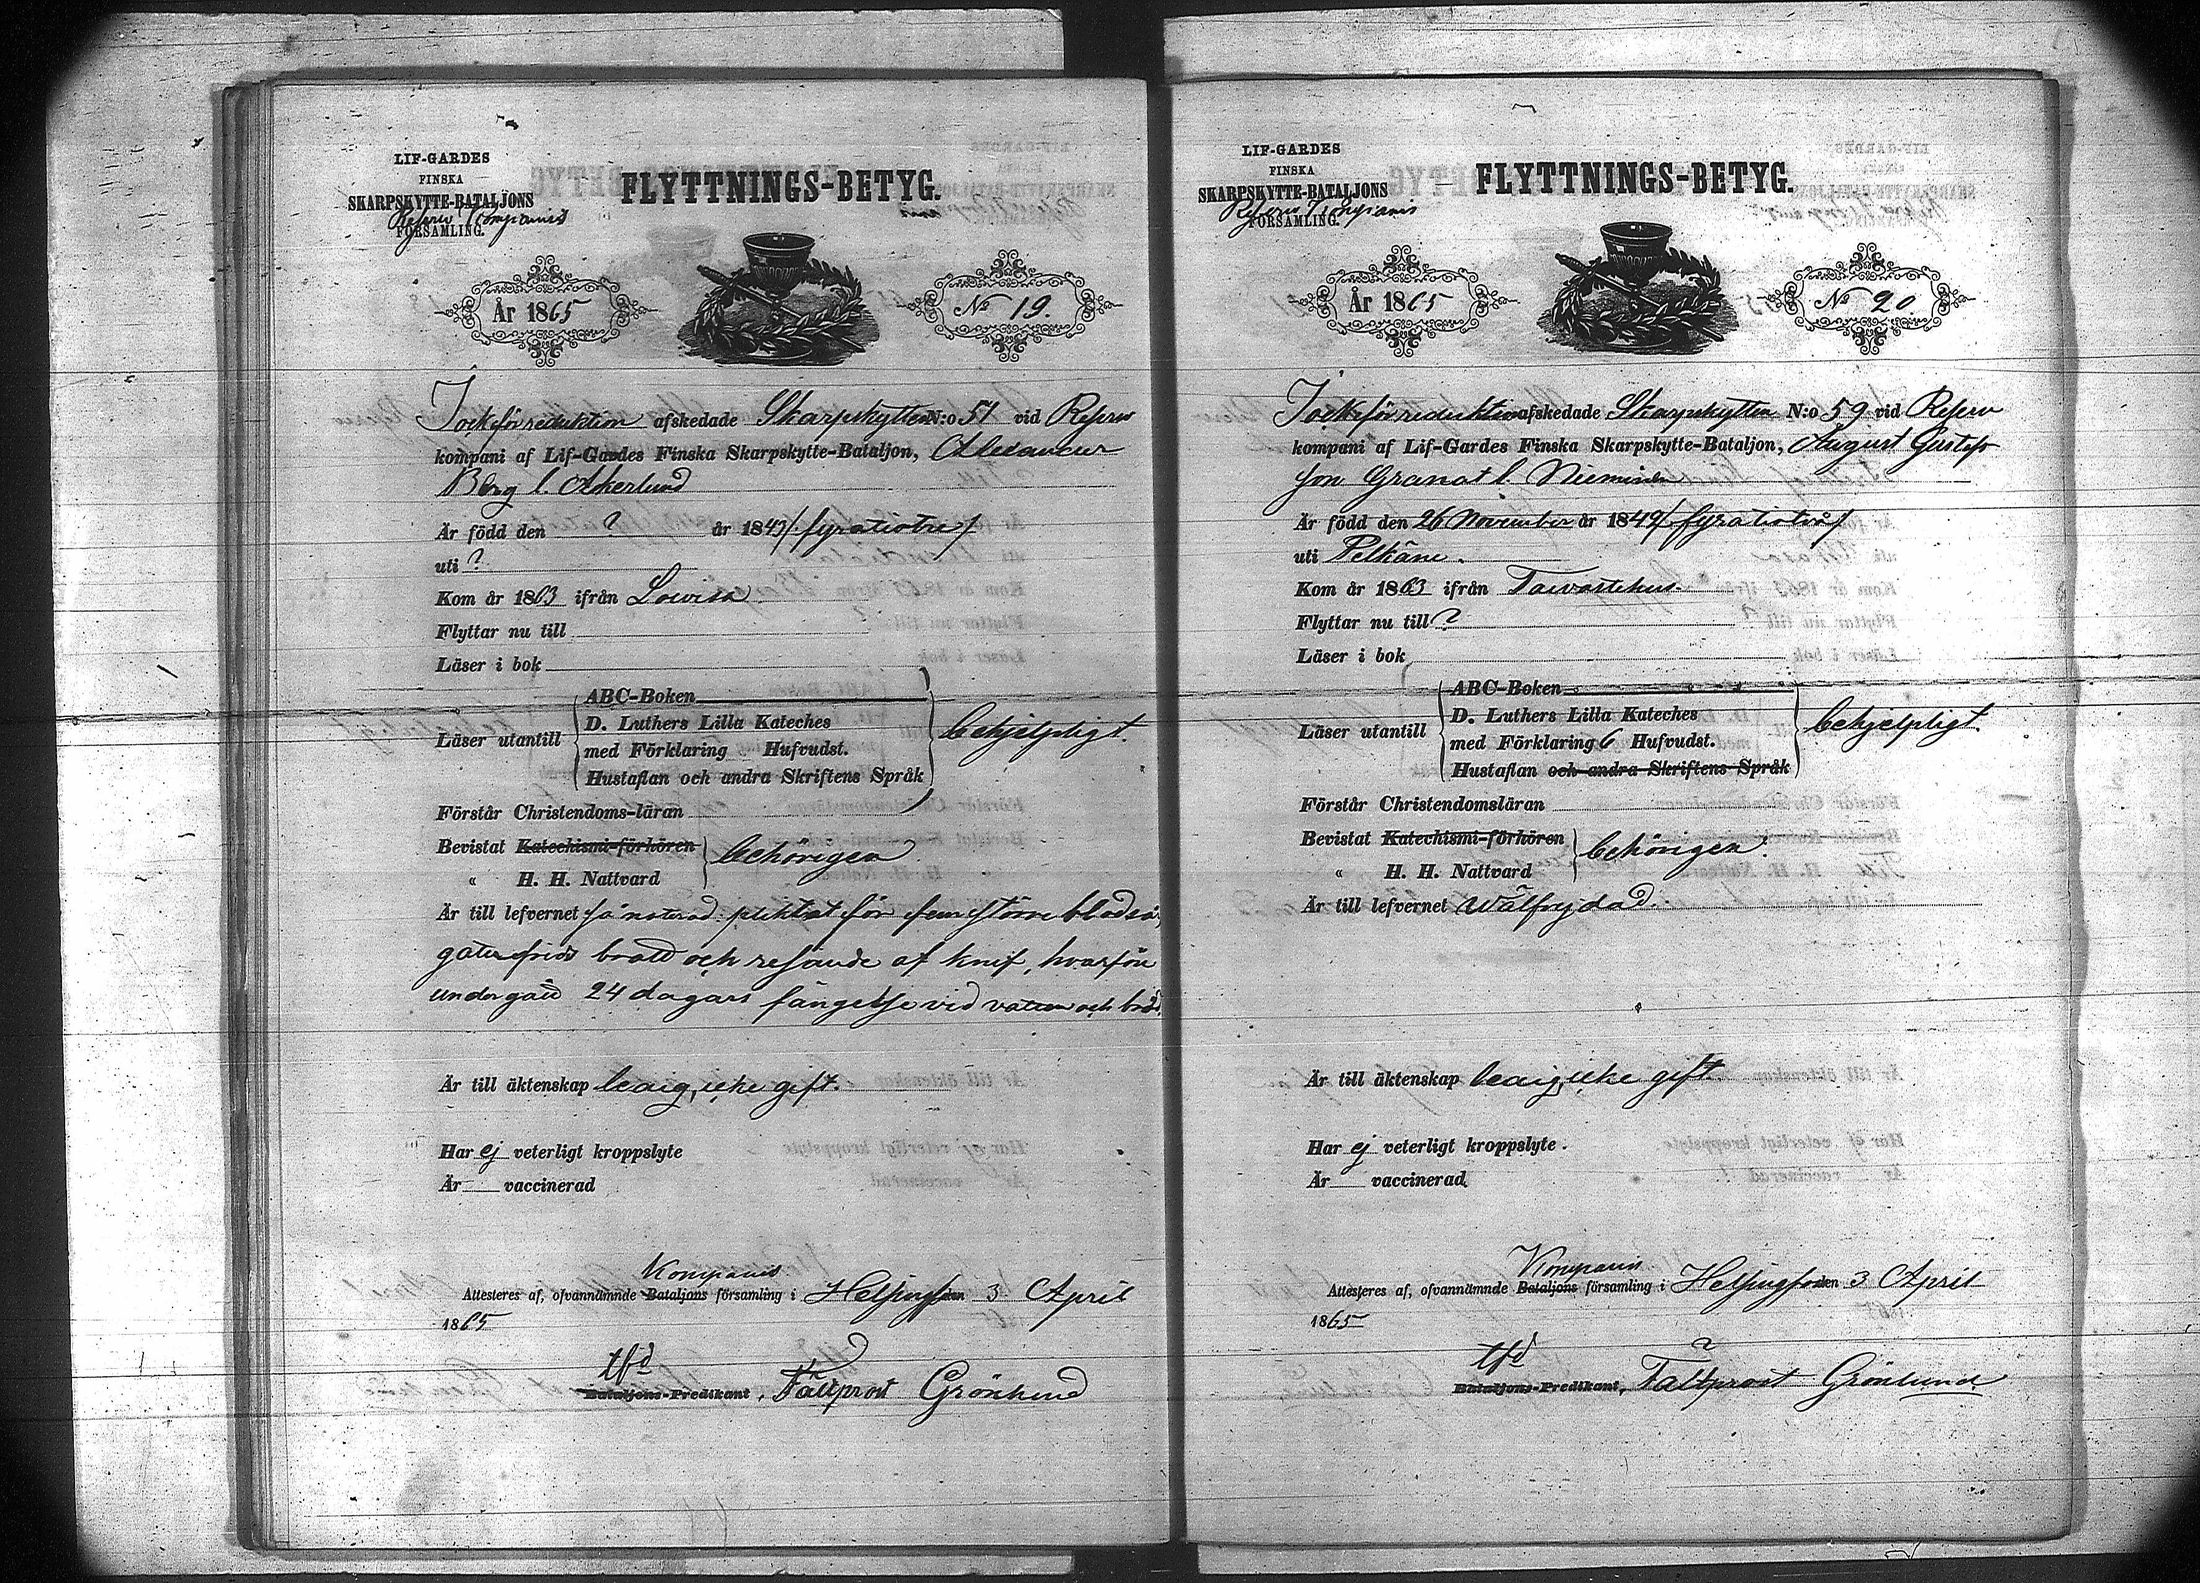 LIF-GARDES
FINSKA
SKARPSKYTTE-BATALJONS
Reserv Kompanis
FÖRSAMLING.
FLYTTNINGS-BETYG.
År 1865
No 19.
för reduktion afskedade Skarpskytten N:o 51 vid Reserv
kompani af Lif-Gardes Finska Skarpskytte-Bataljon, Alexander
Berg l. Åkerlund
Är född den ? år 1843 /: fyratiotre /
uti ?
Kom år 1863 ifrån Lowisa
Flyttar nu till
Läser i bok
Läser utantill
ABC-Boken
D. Luthers Lilla Kateches
med Förklaring Hufvudst.
Hustaflan och andra Skriftens Språk
behjelpligt.
Förstår Christendoms-läran
Bevistat Katechismi-förhören
" H. H. Nattvard
behörigen
Är till lefvernet så noterad: pliktat för
och af knif, hvarför
undergått 24 dagars fängelse vid vatten och bröd.
Är till äktenskap ledig, icke gift.
Har ej veterligt kroppslyte
Är vaccinerad
Kompanis
Attesteres af, ofvannämnde Bataljons församling i Helsingfors den 3 April
1865
tfd
Bataljons-Predikant, Fältprost Grönlund
LIF-GARDES
FINSKA
SKARPSKYTTE-BATALJONS
Reserv Kompanis
FÖRSAMLING.
FLYTTNINGS-BETYG.
År 1865
No 20.
för reduktion afskedade Skarpskytten N:o 59 vid Reserv
kompani af Lif-Gardes Finska Skarpskytte-Bataljon, August Gustafs
son Granat l. Nieminen
Är född den 26 November år 1842 /: fyratiotvå /
uti Pelkäne.
Kom år 1863 ifrån Tawastehus
Flyttar nu till ?
Läser i bok
Läser utantill
ABC-Boken
D. Luthers Lilla Kateches
med Förklaring 6 Hufvudst.
Hustaflan och andra Skriftens Språk
behjelpligt.
Förstår Christendomsläran
Bevistat Katechismi-förhören
" H. H. Nattvard
behörigen.
Är till lefvernet wälfrejdad.
Är till äktenskap ledig, icke gift.
Har ej veterligt kroppslyte.
Är vaccinerad
Kompanis
Attesteres af, ofvannämnde Bataljons församling i Helsingfors den 3 April
1865
tfd
Bataljons-Predikant, Fältprost Grönlund